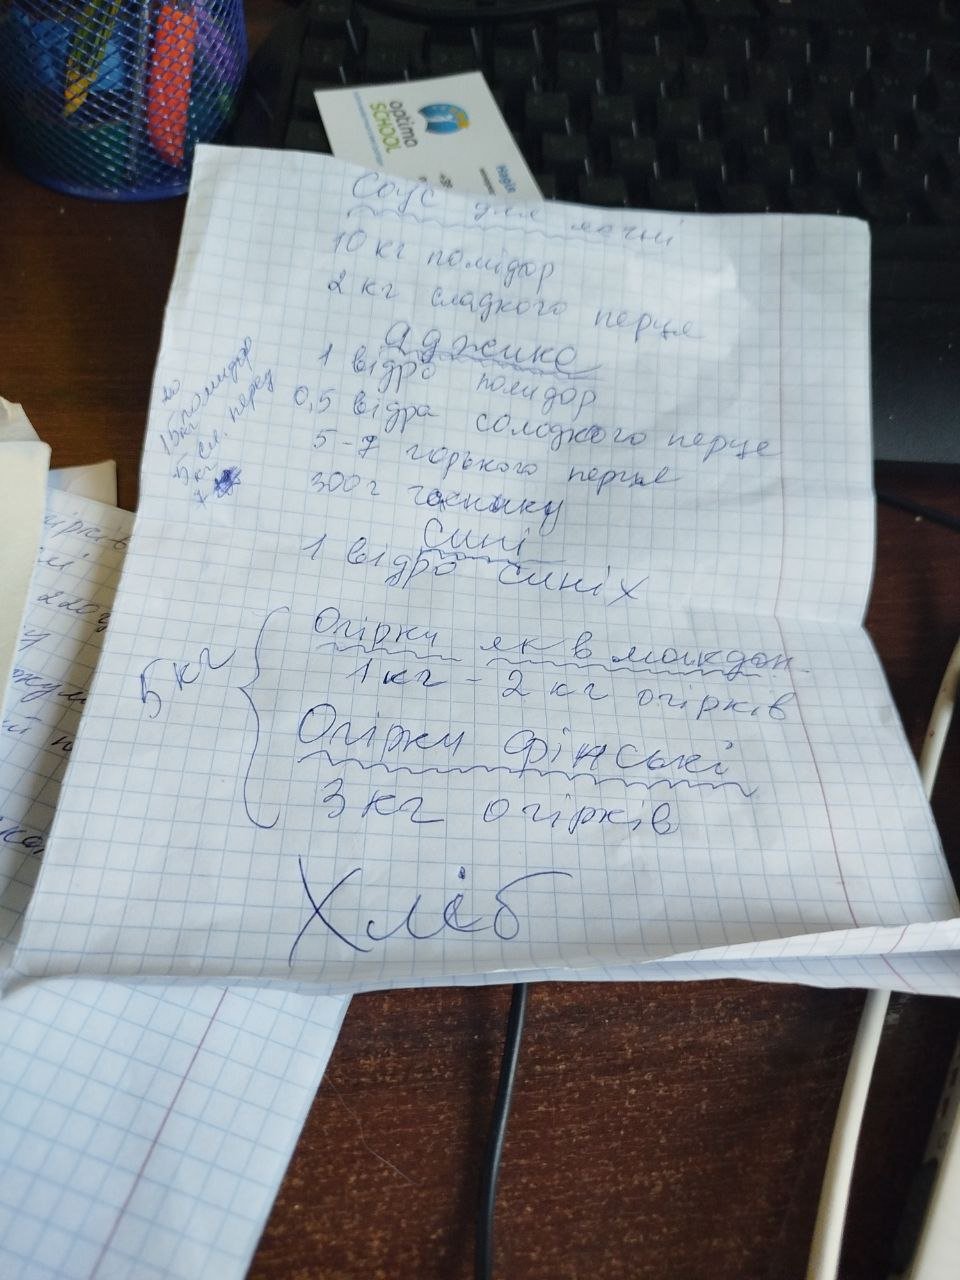 optimo
SCHOOL
Соус для
10 кг помідор
2 кг сладкого перця
аджика
1 відро помидор
0,5 відра солодкого перце
5-7 горького перця
300 г часнику
сині
1 відро синіх
15 помидор
кг
5 сл. перец
кг
7
5 кг
Огірки як в макдон.
1 кг - 2 кг огірків
Огірки фінські
3 кг огірків
Хліб
огірків
220